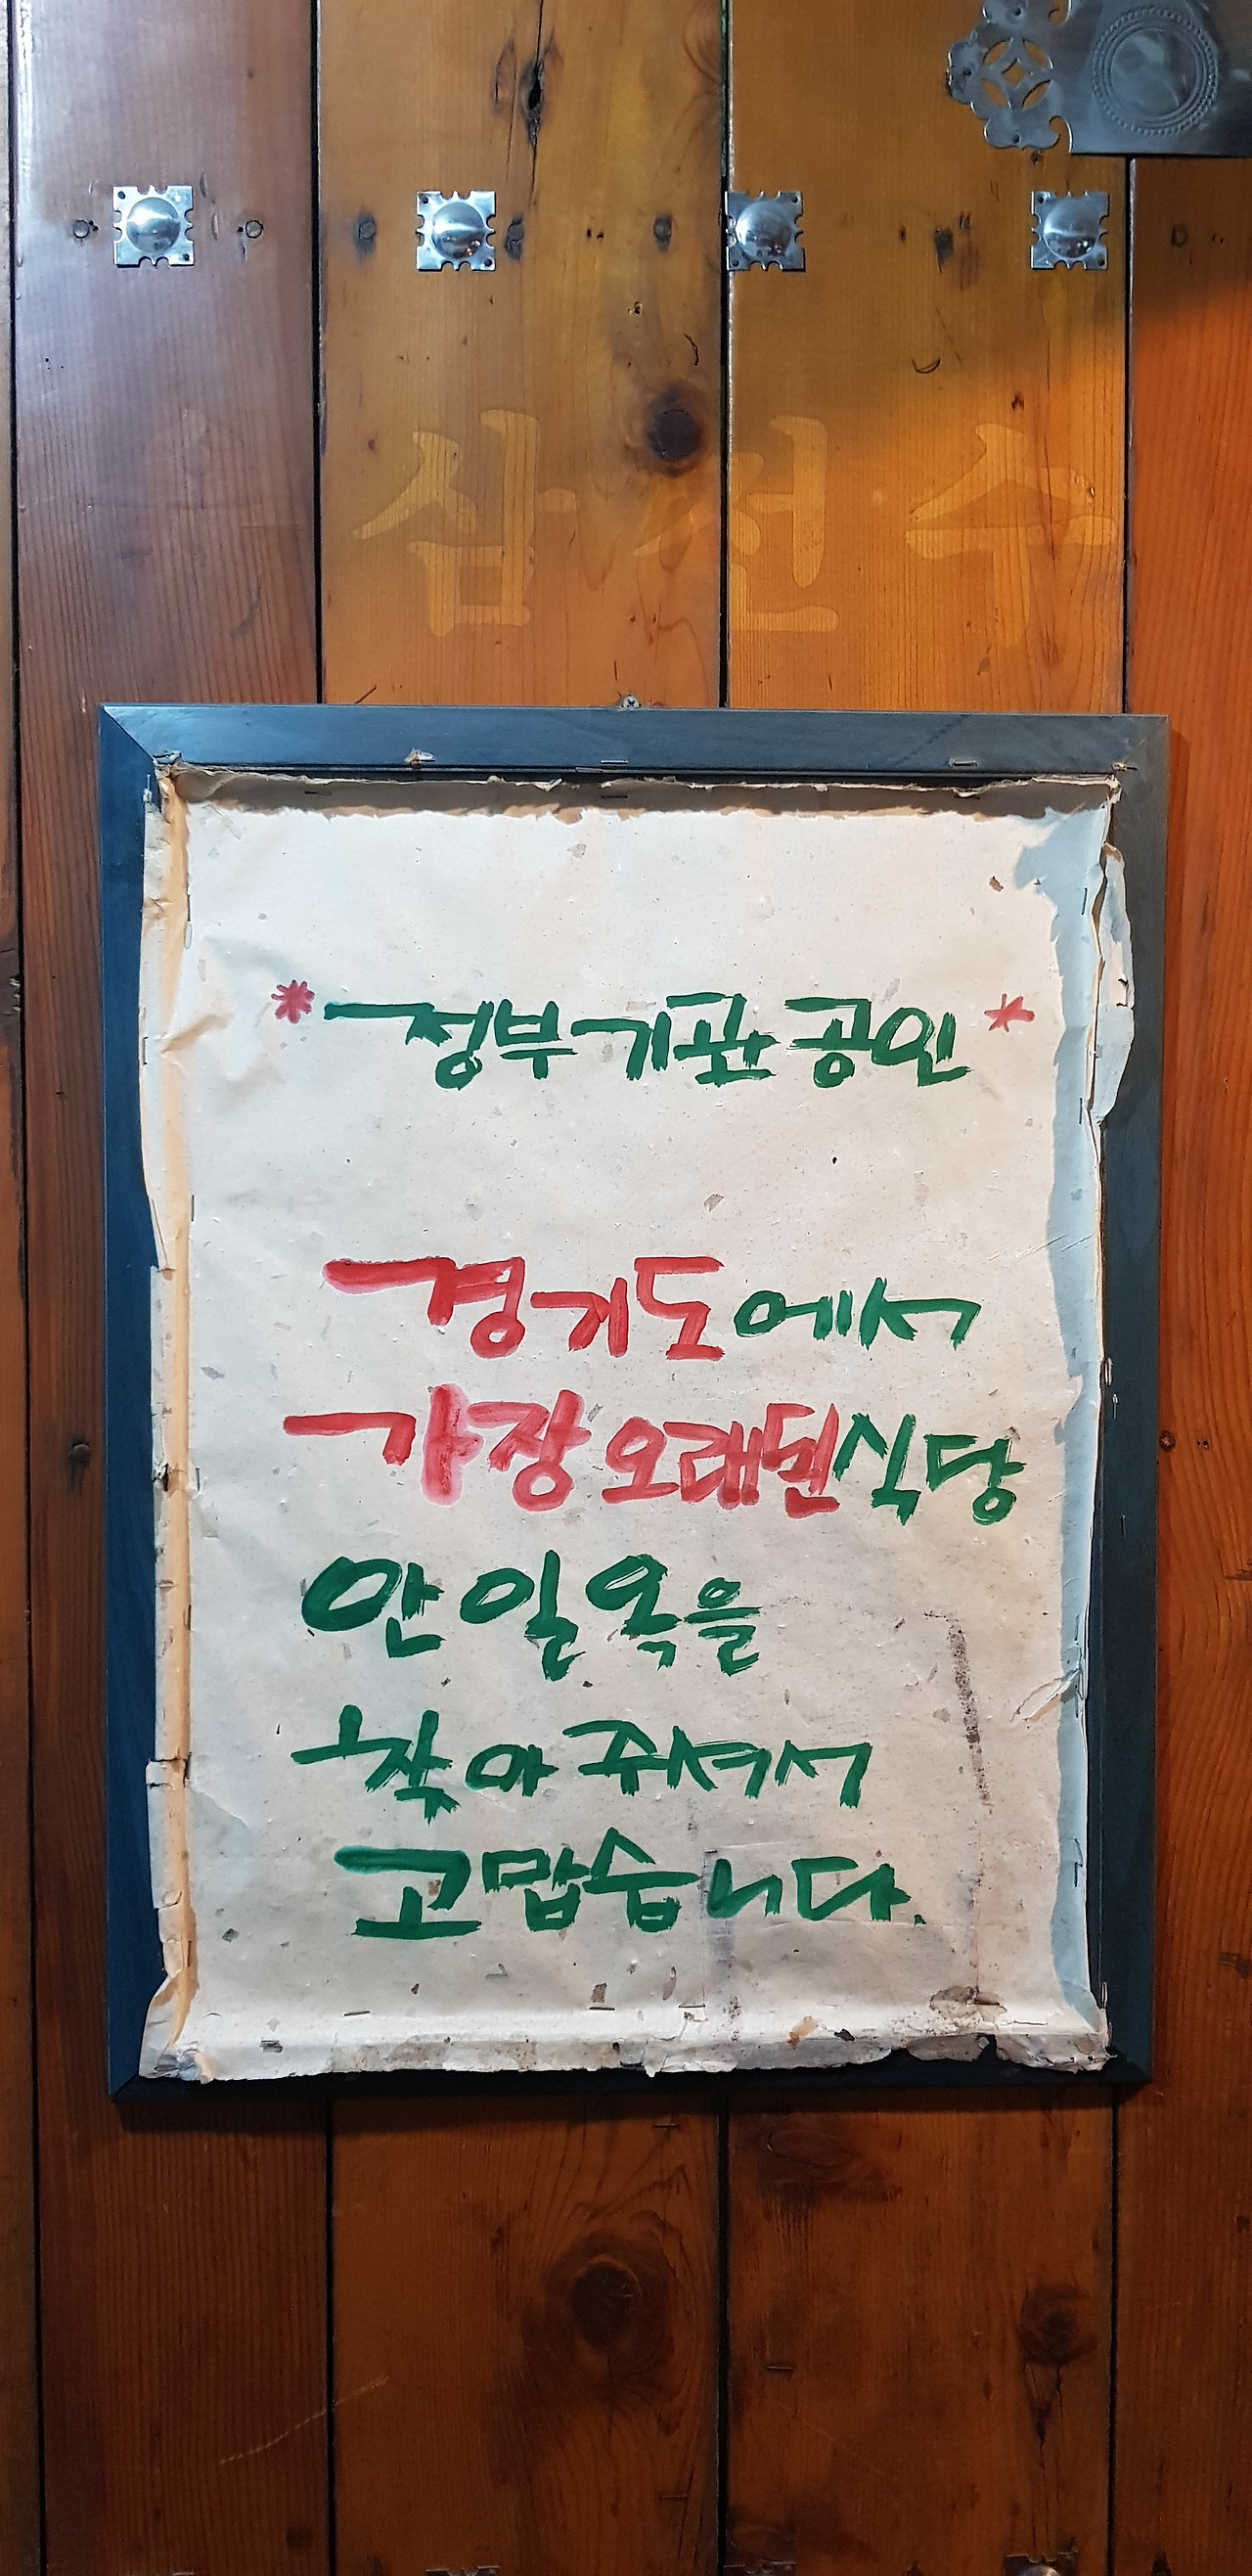 삼천수
*정부기관공인*
경기도에서
가장오래된식당
안일옥을
찾아주셔서
고맙습니다.